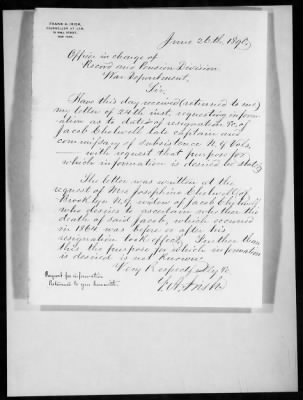 FRANK A. IRISH,
COUNSELLOR AT LAW,
WALL STREET,
NEW YORK.
June 26th, 1896
Officer in charge of
Record and Pension Division
War Department,
Sir:
Have this day received (returned to me)
my letter of 24th inst, requesting inform-
ation as to date of resignation &c of
Jacob late captain and
commissary of Subsistence N.Y. Vols,
with request that purpose for
which information is desired be stated
The letter was written at the
request of Mrs Josephine of
Brooklyn N.Y. widow of Jacob
who desires to ascertain whether the
death of said Jacob, which occurred
in 1864 was before or after his
resignation took effect. Further than
this the purpose for which information
is desired is not known.
Very Respectfully &c
Irish
Request for information
Returned to you herewith